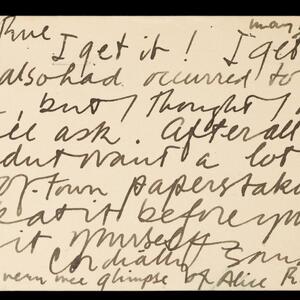 Rue may
I get it! I get
also had occurred to
, but I thought I
'll ask. After all
dn't want a lot
of-town papers take
k at it before you
it yourself
Cordially
very nice glimpse of Alice R